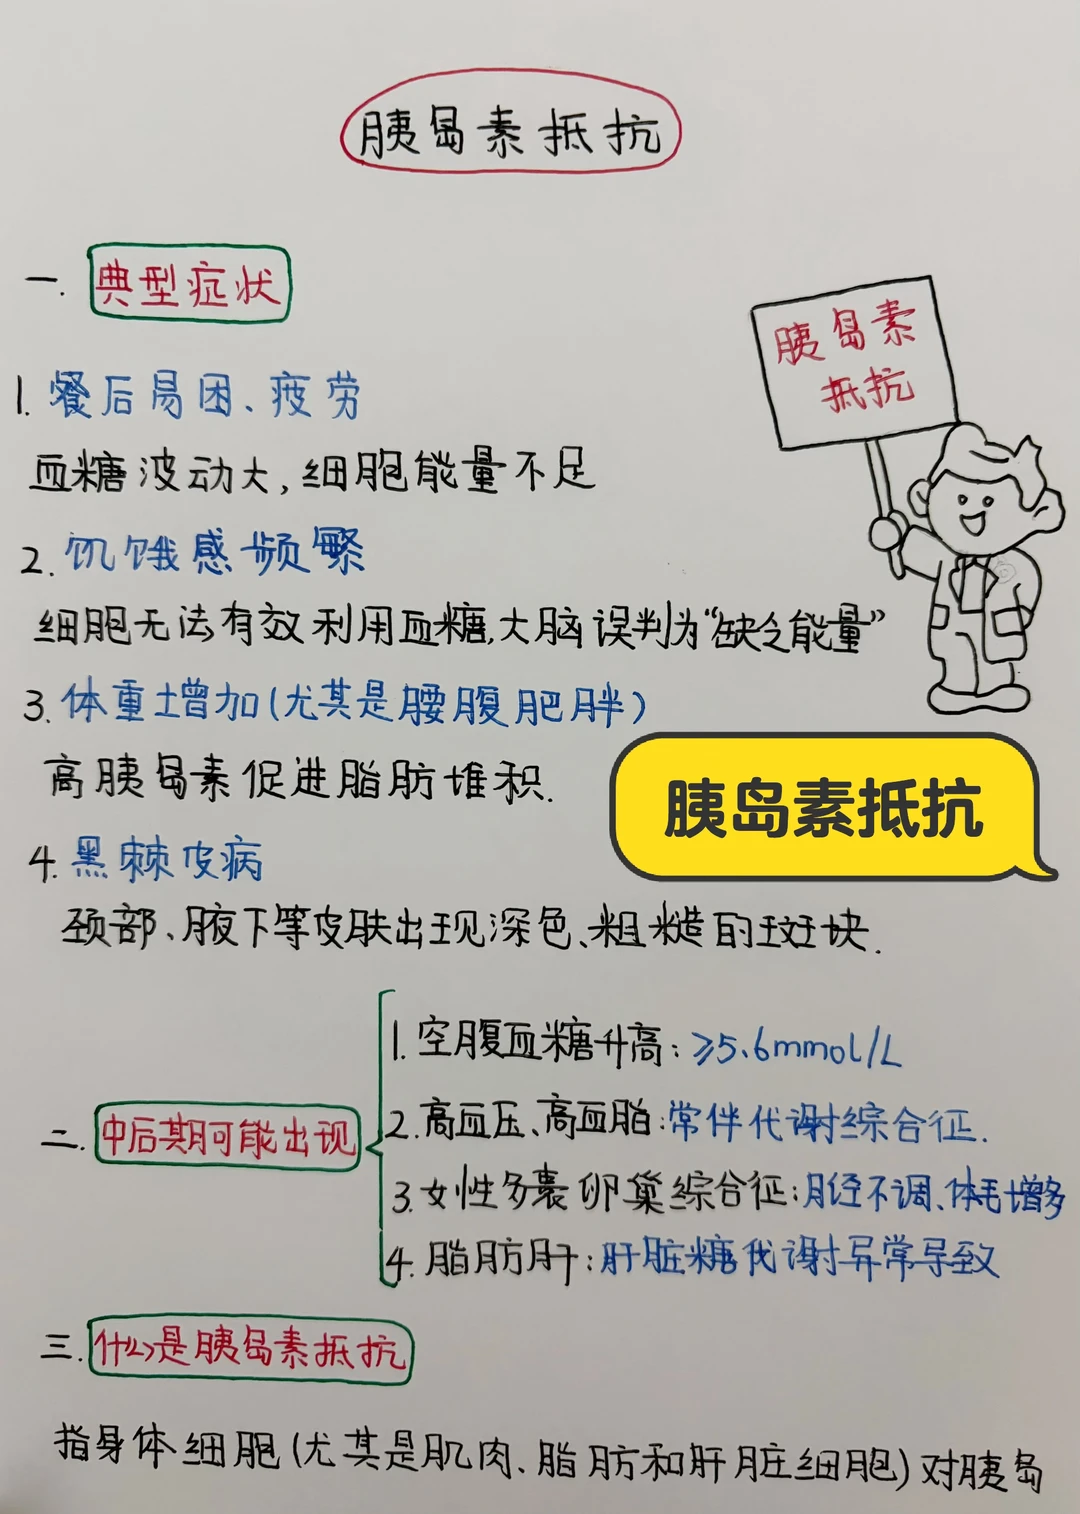 胰岛素抵抗
一. 典型症状
胰岛素
抵抗
1. 餐后易困、疲劳
血糖波动大,细胞能量不足
2. 饥饿感频繁
细胞无法有效利用血糖,大脑误判为“缺乏能量”
3. 体重增加(尤其是腰腹肥胖)
高胰岛素促进脂肪堆积.
胰岛素抵抗
4. 黑棘皮病
颈部、腋下等皮肤出现深色、粗糙的斑块.
二. 中后期可能出现
1. 空腹血糖升高: ≥5.6mmol/L
2. 高血压、高血脂:常伴代谢综合征.
3. 女性多囊卵巢综合征:月经不调、体毛增多
4. 脂肪肝:肝脏糖代谢异常导致
三. 什么是胰岛素抵抗
指身体细胞(尤其是肌肉、脂肪和肝脏细胞)对胰岛